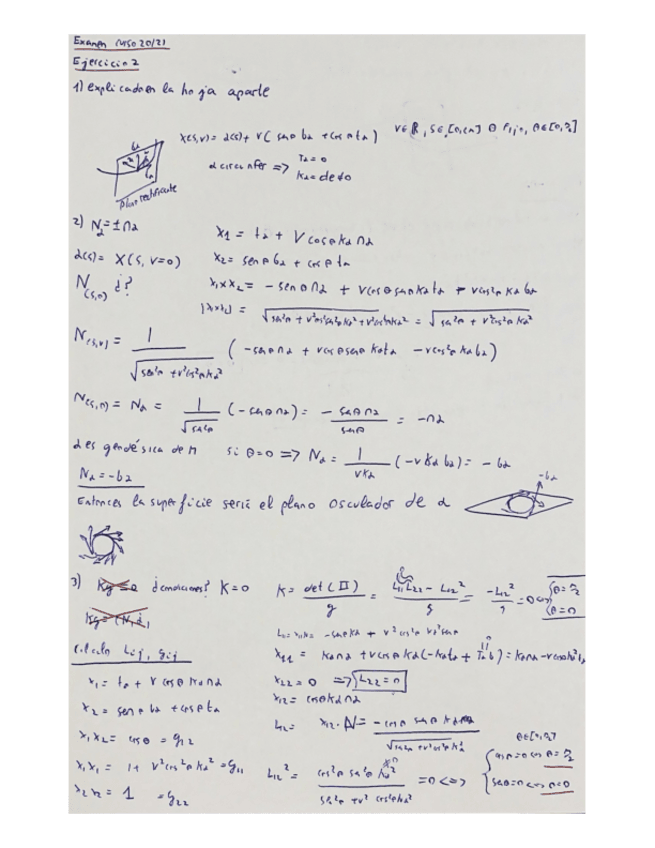 Examen curso 20/21
Ejercicio 2
1) explicado en la hoja aparte
x(s,v) = α(s) + v( senθ bα + cosθ tα ) v∈ℝ, s∈[0,2π] θ fijo, θ∈[0,
α circunfer => Tα = 0
Kα = cte ≠ 0
plano rectificante
2) Nα = ±nα
x1 = tα + v cosθ kα nα
α(s) = X(s, v=0)
x2 = senθ bα + cosθ tα
N(s,0) ¿?
x1×x2 = - senθ nα + v cosθ senθ kα tα - v cos²θ kα bα
|x1×x2| = √sen²θ + v²cos²θsen²θkα² + v²cos⁴θkα² = √sen²θ + v²cos²θkα²
N(s,v) = 1 / √sen²θ + v²cos²θkα² ( -senθ nα + v cosθ senθ kα tα - v cos²θ kα bα )
N(s,0) = Nα = 1 / √sen²θ (-senθ nα) = - senθ nα / senθ = -nα
α es geodésica de M si θ=0 => Nα = 1 / vkα (-v kα bα) = - bα
Nα = -bα
-bα
Entonces la superficie seria el plano osculador de α
3) Kg = 0 ¿condiciones? K=0 K = det(II) / g = L11L22 - L12² / g = -L12² / g = 0
θ=0
Calculo Lij, gij
x11 = kα nα + v cosθ kα(-kα tα + Tα b)
x1 = tα + v cosθ kα nα
x22 = 0 => L22 = 0
x2 = senθ bα + cosθ tα
x12 = cosθ kα nα
x1x2 = cosθ = g12
L12 = x12·N = -cosθ senθ kα / √sen²θ + v²cos²θkα²
θ∈[0,
x1x1 = 1 + v²cos²θkα² = g11
L12² = cos²θ sen²θ kα² / sen²θ + v² cos²θkα² = 0 <=>
senθ=0 <=> θ=0
x2x2 = 1 = g22